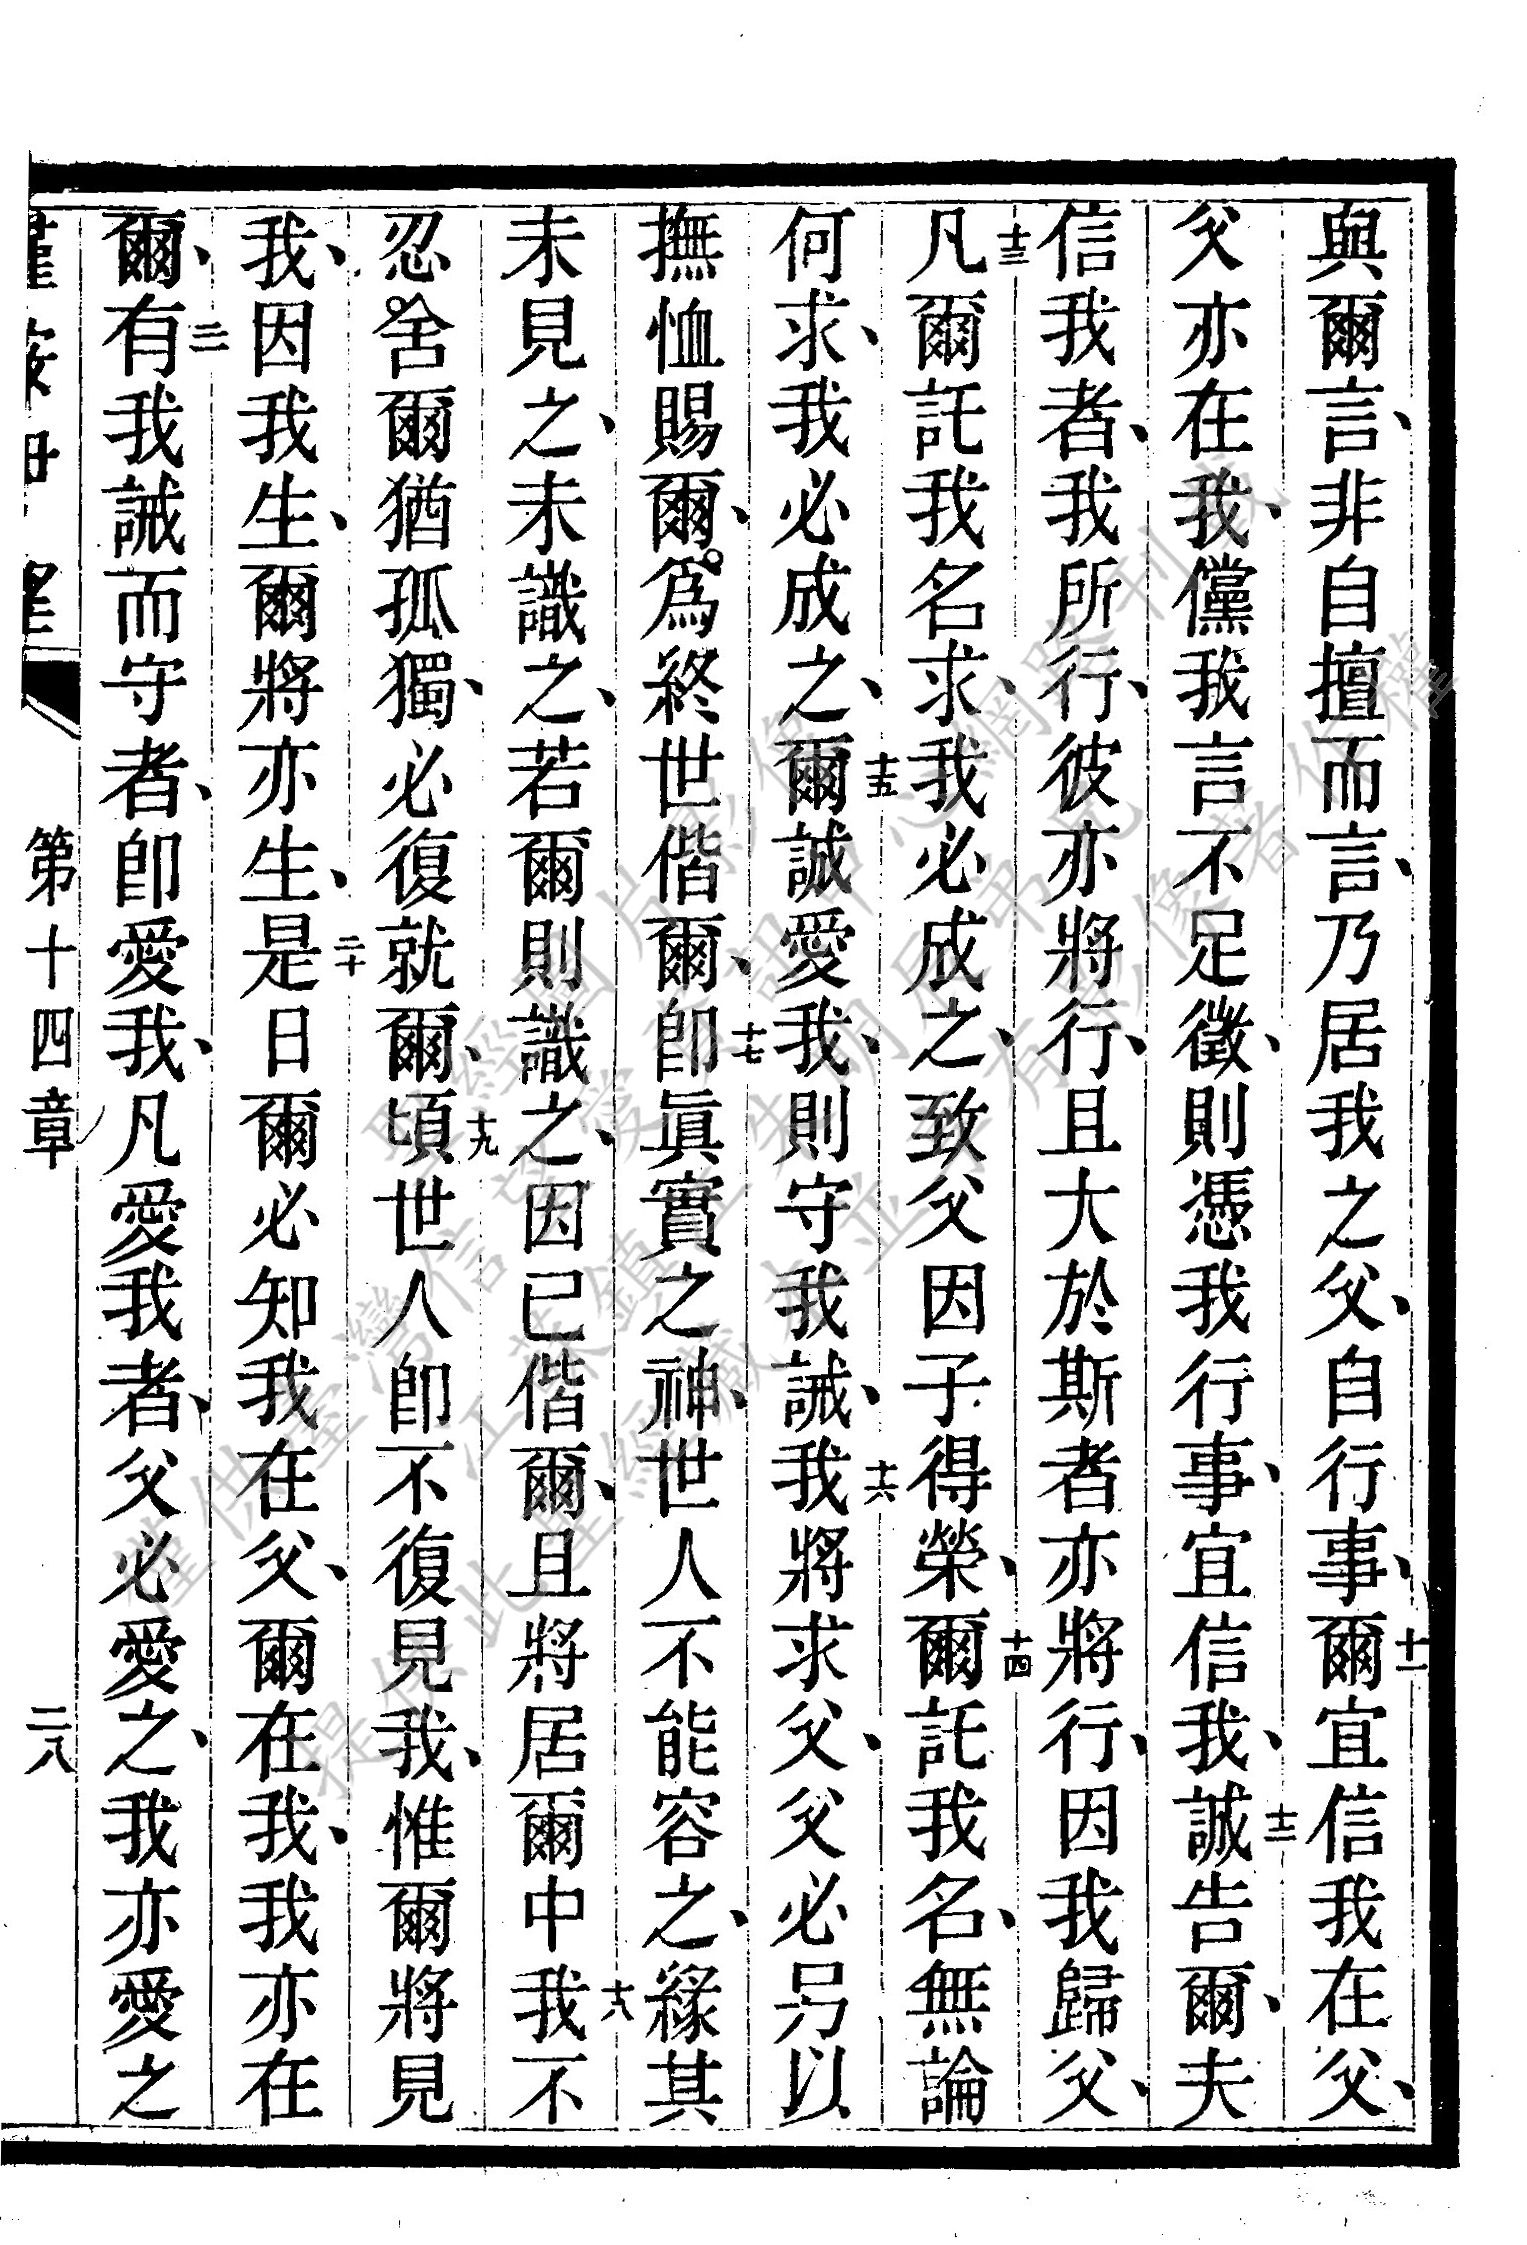 與爾言、非自擅而言、乃居我之父、自行事、十一爾宜信我在父、
父亦在我、儻我言不足徵、則憑我行事、宜信我、十二誠告爾、夫
信我者、我所行、彼亦將行、且大於斯者亦將行、因我歸父、
十三凡爾託我名求、我必成之、致父因子得榮、十四爾託我名、無論
何求、我必成之、十五爾誠愛我、則守我誡、十六我將求父、父必另以
撫恤賜爾、爲終世偕爾、十七卽眞實之神、世人不能容之、緣其
未見之、未識之、若爾則識之、因已偕爾、且將居爾中、十八我不
忍舍爾猶孤獨、必復就爾、十九頃世人卽不復見我、惟爾將見
我、因我生、爾將亦生、二十是日爾必知我在父、爾在我、我亦在
爾、二一有我誡而守者、卽愛我、凡愛我者、父必愛之、我亦愛之
第十四章 二八